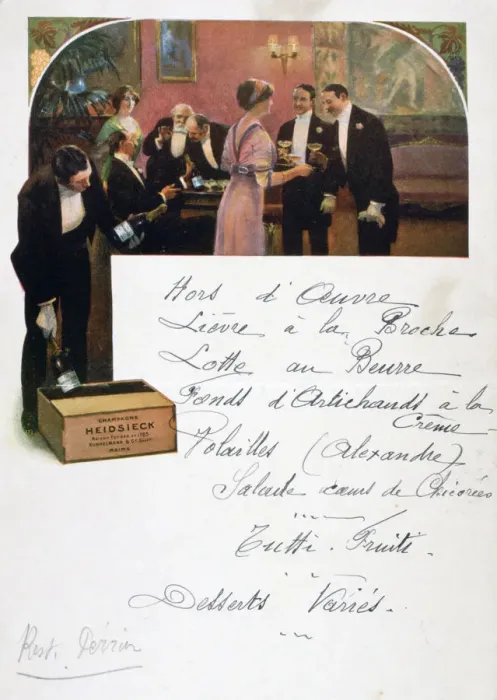 CHAMPAGNE
HEIDSIECK
MAISON FONDÉE EN 1785
REIMS
Hors d'Œuvre
Lièvre à la Broche
Lotte au Beurre
Fonds d'Artichauds à la
Crème
Volailles (Alexandre)
Salade cœurs de Chicorées
Tutti-Fruiti.
Desserts Variés.
Rest.